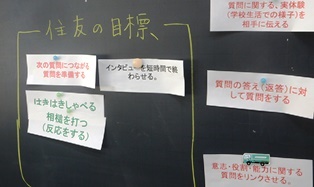 住友の目標
次の質問につながる
質問を準備する
インタビューを短時間で終
わらせる。
はきはきしゃべる
相槌を打つ
(反応をする)
質問に関する、実体験
(学校生活での様子)を
相手に伝える
質問の答え(返答)に対
して質問をする
意志・役割・能力に関する
質問をリンクさせる。